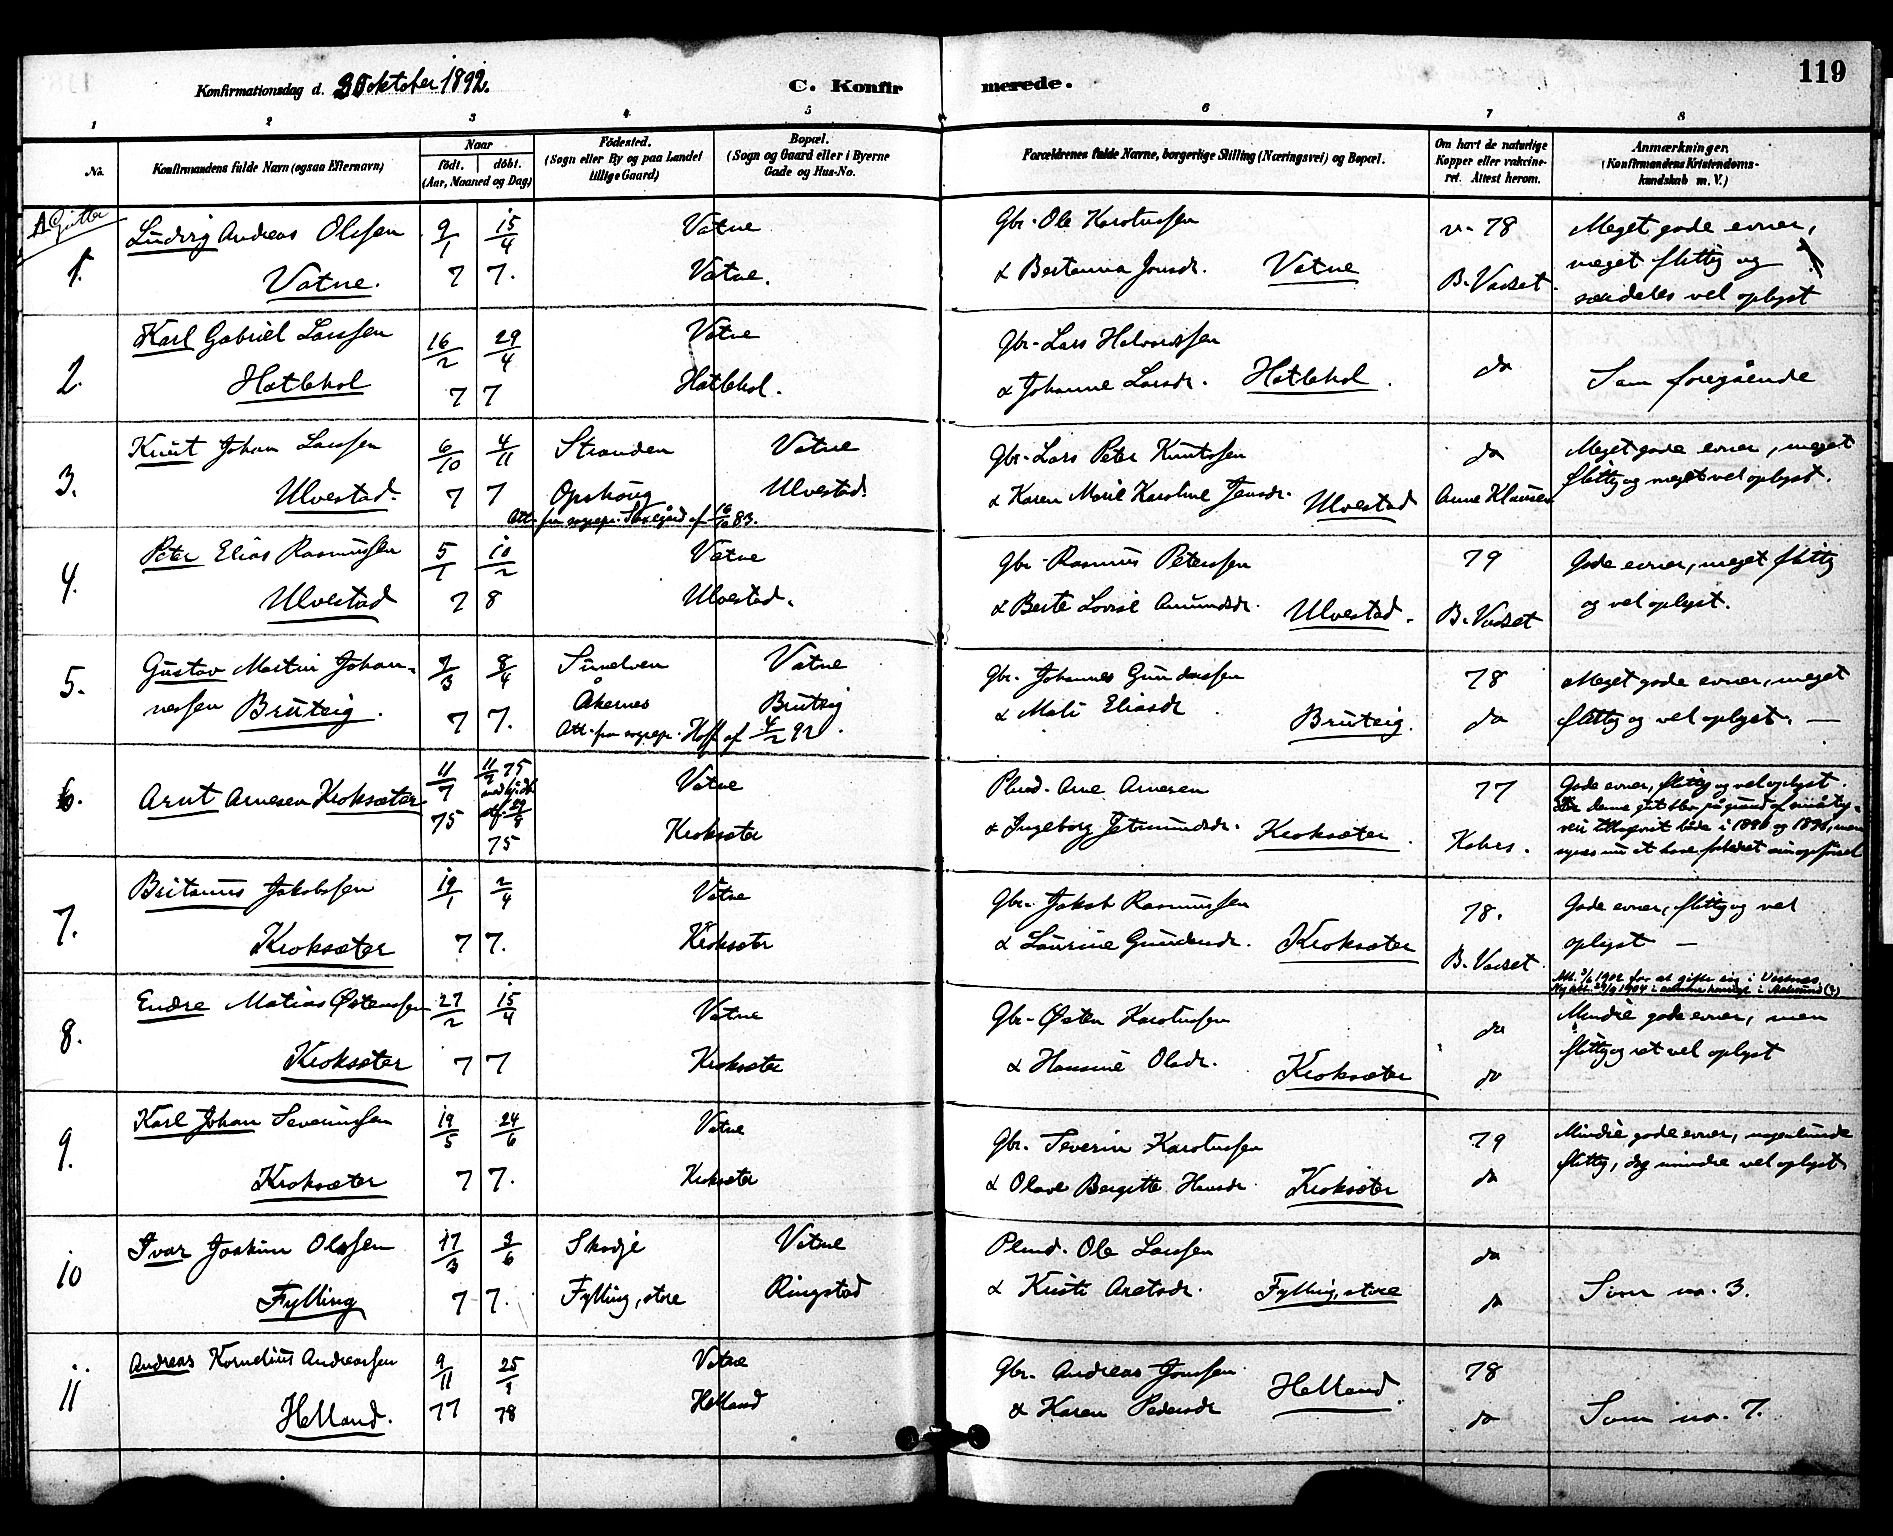 119
Konfirmationsdag d. 2 Oktober 1892.
C. Konfirmerede.
1 2 3 4 5 6 7 8
No.
Konfirmandens fulde Navn (ogsaa Efternavn)
Naar
født. døbt.
(Aar, Maaned og Dag)
Fødested.
(Sogn eller By og paa Landet
tillige Gaard)
Bopæl.
(Sogn og Gaard eller i Byerne
Gade og Hus-No.
Forældrenes fulde Navne, borgerlige Stilling (Næringsvei) og Bopæl.
Om havt de naturlige
Kopper eller vaccine-
ret. Attest herom.
Anmærkninger.
(Konfirmandens Kristendoms-
kundskab m. V.)
A Gutter
1. Ludvig Andreas Olssen 9/1 15/4 Vatne Gbr. Ole Karolussen v. 78 Meget gode evner,
Vatne. 77 77. Vatne. & Bertanna Jonsdr. Vatne B. Vadset meget flittig og
særdeles vel oplyst
2. Karl Gabriel Larssen 16/2 29/4 Vatne Gbr. Lars Halvardssen do
Hatlehol 77 77 Hatlehol. & Johanne Larsdr. Hatlehol. Som foregående
3. Knut Johan Larssen 6/10 4/11 Stranden Vatne Gbr. Lars Peter Knutssen do Meget gode evner, meget
Ulvestad. 77 77 Opshoug Ulvestad. & Karen Marie Karoline Jensdr. Ulvestad Anne Klausen flittig og meget vel oplyst.
Att. fra sognepr. 83.
4. Peter Elias Rasmussen 5/1 10/2 Vatne Gbr. Rasmus Peterssen 79 Gode evner, meget flittig
Ulvestad 78 Ulvestad. & Berte Lovise Amundsdr. Ulvestad. B. Vadset og vel oplyst.
5. Gustav Martin Johan- 7/3 8/4 Sunelven Vatne Gbr. Johannes Gunderssen 78 Meget gode evner, meget
nessen Bruteig. 77 77. Åkernes Bruteig & Mali Eliasdr Bruteig. do flittig og vel oplyst. —
Att. fra sognepr. Hoff af 4/2 92.
6. Arnt Arnesen Kroksæter 11/7 75 11/7 75 Vatne Plmd. Arne Arnesen 77 Gode evner, flittig og vel oplyst.
75 Kroksæter & Ingeborg Jetmundsdr. Kroksæter. Kobes. denne gut blev på grund af småty-
veri både i 1890 og 1891, men
synes nu at have forbedret sin opførsel
7. Britanus Jakobssen 19/1 2/4 Vatne Gbr. Jakob Rasmussen 78. Gode evner, flittig og vel
Kroksæter 77 77. Kroksæter & Laurine Gundersdr. Kroksæter B. Vadset oplyst —
Att. 3/6 1902 for at gifte sig i Vestnes
8. Endre Matias Østenssen 27/2 15/4 Vatne Gbr. Østen Karolussen do Mindre gode evner, men
Kroksæter 77 77 Kroksæter & Hansine Olsdr. Kroksæter do flittig og ret vel oplyst
9. Karl Johan Severinssen 19/5 24/6 Vatne Gbr. Severin Karolussen 79 Mindre gode evner, nogenlunde
Kroksæter 77 77. Kroksæter & Olave Bergitte Hansdr. Kroksæter do flittig, dog mindre vel oplyst
10 Ivar Joakim Olssen 17/3 3/6 Skodje Vatne Plmd. Ole Larssen do
Fylling 77 77. Fylling, store Ringstad & Kristi Aretsdr. Fylling, store do Som no. 3.
11 Andreas Kornelius Andreassen 9/11 25/1 Vatne Gbr. Andreas Jonssen 78
Helland. 77 78 Helland & Karen Pedersdr Helland. do Som no. 7.